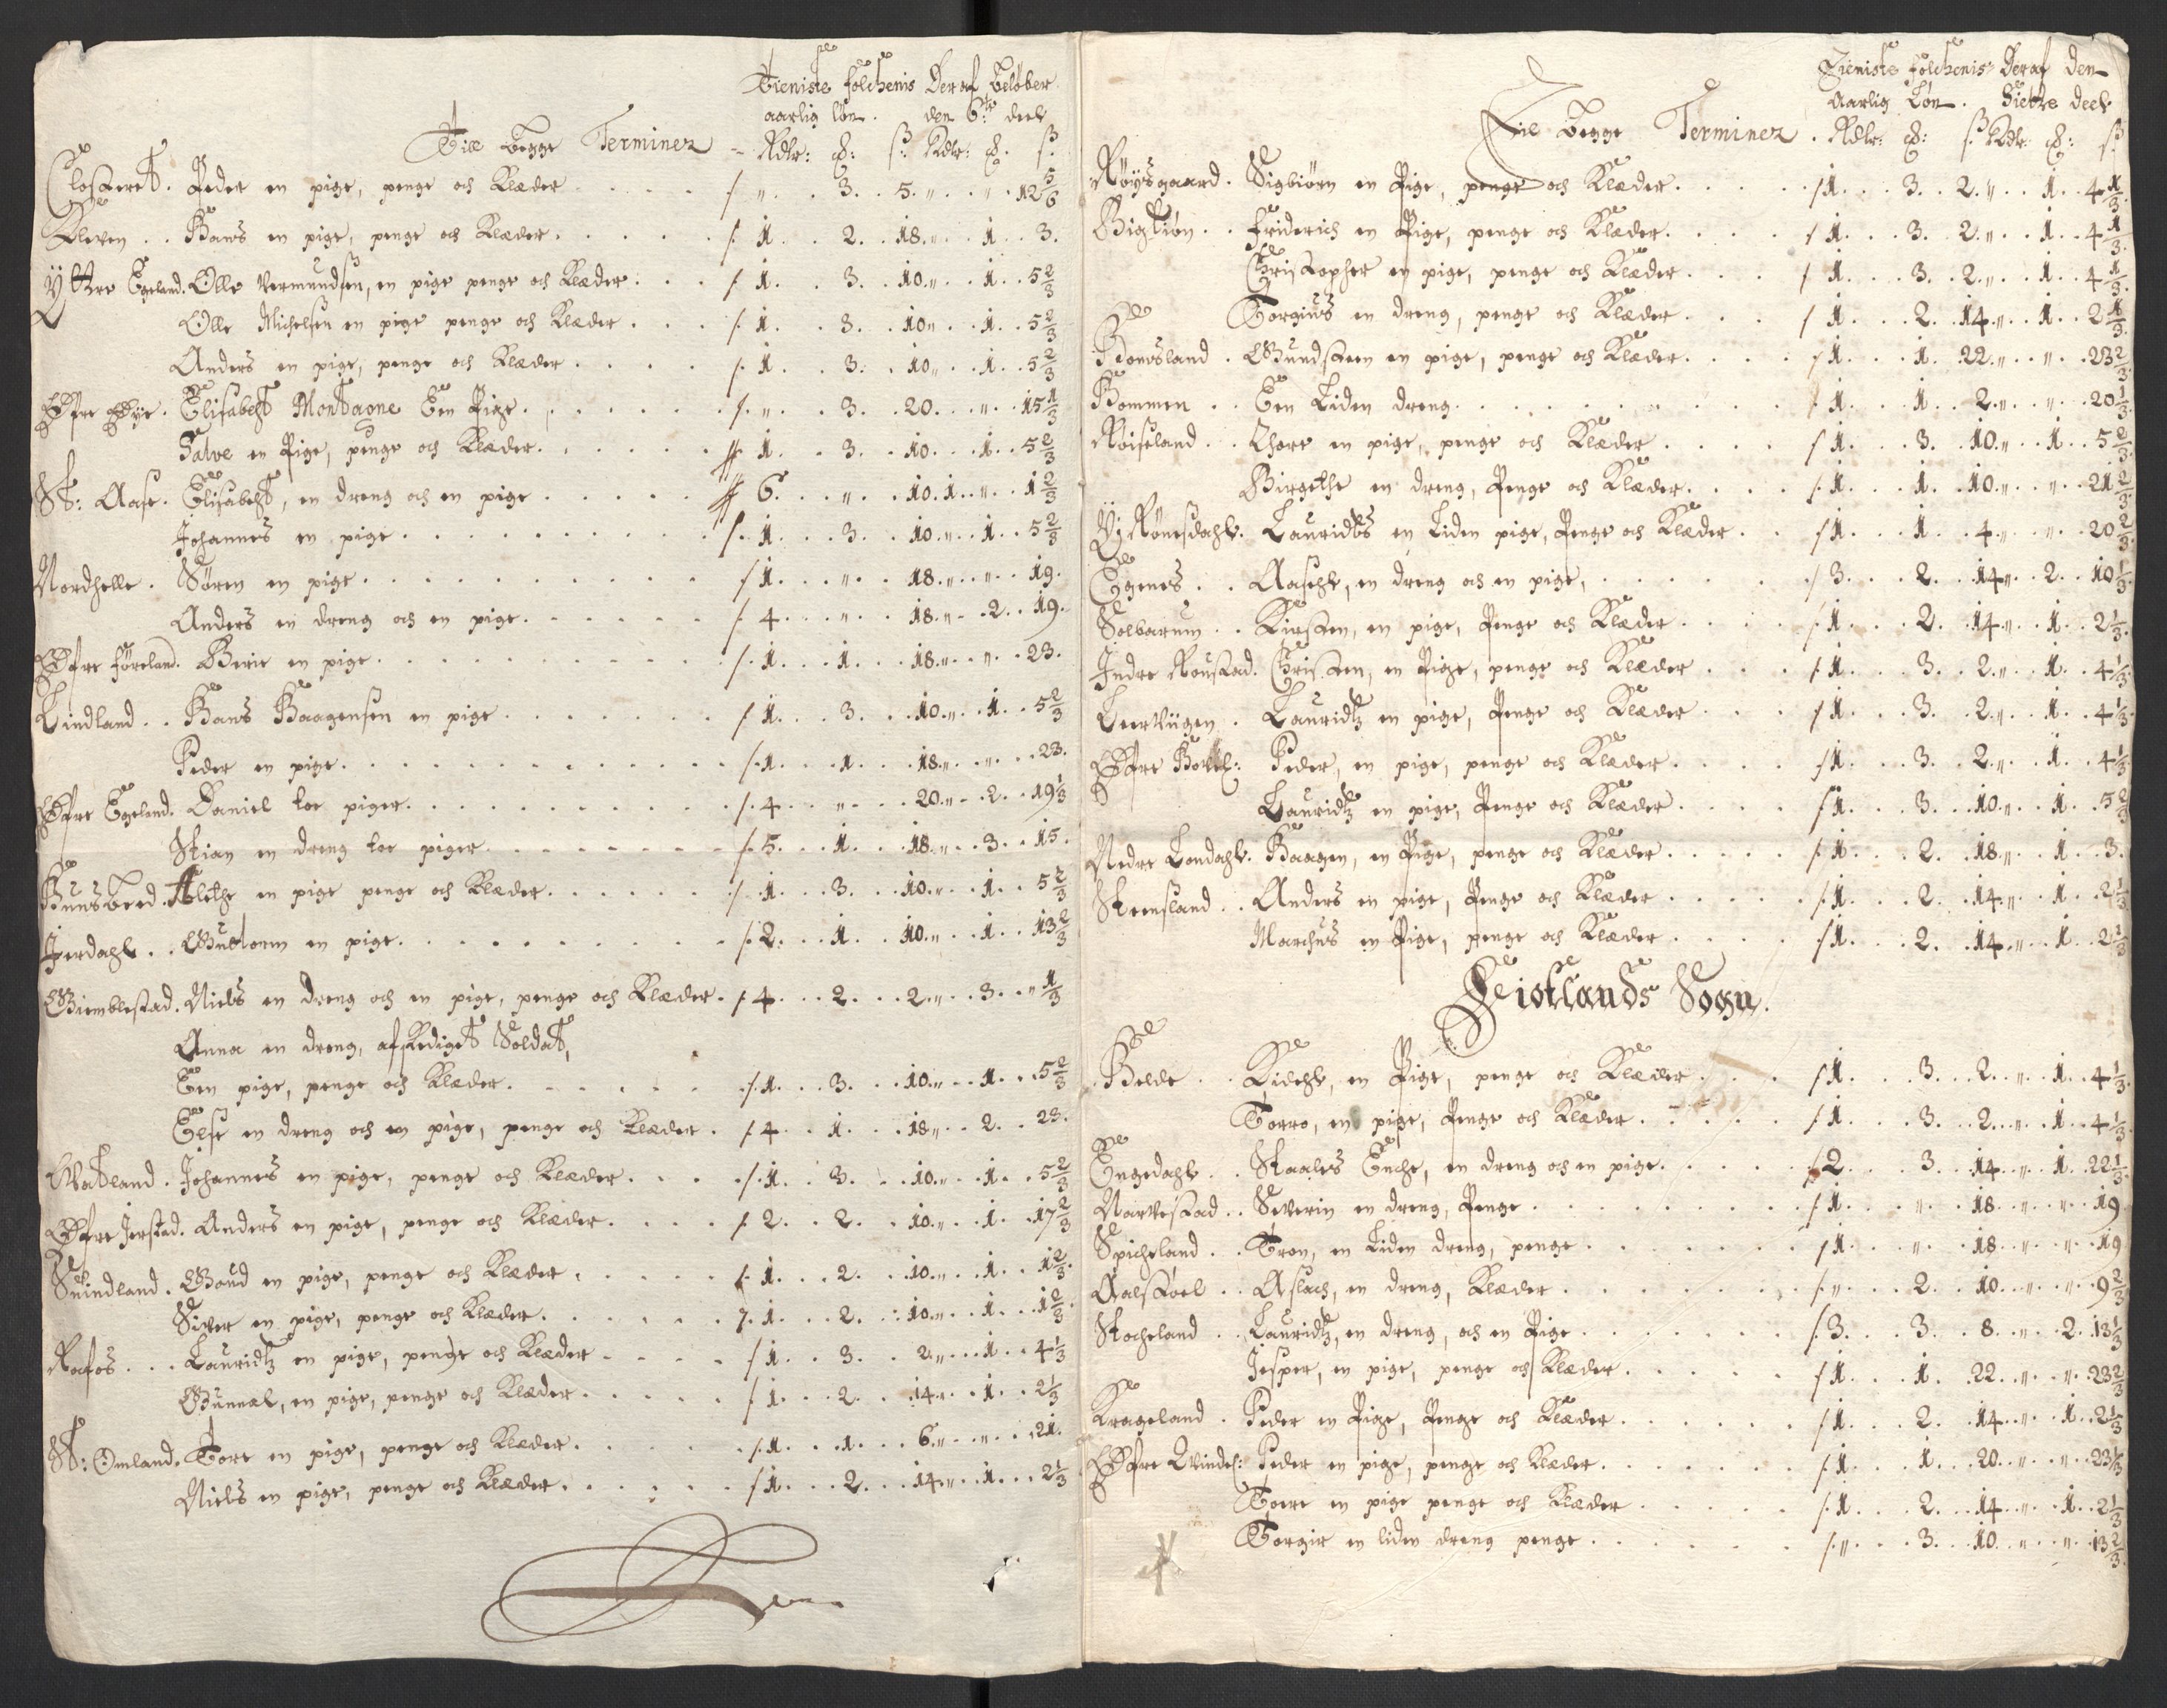 Tieniste folchenis Deraf beløber
aarlig løn. den 6te deel
Til begge Terminer - Rdlr: ℔: ß. Rdlr: ℔. ß.
Closteret. Peder en pige, penge och Klæder . . . . / „ . 3. 5. „ . „ . 12 5/6
Kleven . . Hans en pige, penge och Klæder . . . . . /. 1. 2. 18. „ . 1. 3.
Yttre Egeland. Olle Vermundsen, en pige penge och Klæder . . . /. 1. 3. 10. „ . 1. 5 2/3
Olle Michelsen en pige penge och Klæder . . . /. 1. 3. 10 „ . 1. 5 2/3
Anders en pige, penge och Klæder . . . . /. 1. 3. 10. „ . 1. 5 2/3
Øfre Øye. Elisabeht Montagne Een Pige . . . . . . /. „ . 3. 20. . . „ . 15 1/3
Salve en Pige, penge och Klæder . . . . . // 1. 3. 10. . 1. 5 2/3
St: Aase. Elisabeht, en dreng och en pige . . . . . // 6. „ . 10. 1. „ . 1 2/3
Johannes en pige . . . . . . . . . /. 1. 3. 10. „ . 1. 5 2/3
Nordhelle. Søren en pige . . . . . . . . . . / 1. „ . 18. „ . „ . 19.
Anders en dreng och en pige . . . . . . /. 4. „ . 18. „ . 2. 19.
Øfre føreland. Berit en pige . . . . . . . . . . /. 1. 1. 18. „ . „ . 23.
Lindland . . Hans Haagensen en pige . . . . . . . / 1. 3. 10. „ . 1. 5 2/3
Peder en pige . . . . . . . . . . . /. 1. 1. 18. „ . „ . 23.
Øfre Egeland. Daniel toe piger . . . . . . . . . /. 4. „ . 20. „ . 2. 19 1/3
Stian en dreng toe piger . . . . . . . /. 5. 1. 18. „ . 3. 15.
Hunsbeed. Alethe en pige penge och Klæder . . . . . /. 1. 3. 10. „ . 1. 5 2/3
Jerdahl . . Guttorm en pige . . . . . . . . . /. 2. 1. 10. „ . 1. 13 2/3
Gimblestad. Niels en dreng och en pige, penge och Klæder. / 4. 2. 2. „ . 3. „ 1/3
Anna en dreng, afskediget Soldat,
Een pige, penge och Klæder . . . . . /. 1. 3. 10. „ . 1. 5 2/3
Else en dreng och en pige, penge och Klæder . /. 4. 1. 18 „ . 2. 23.
Watland. Johannes en pige, penge och Klæder . . . /. 1. 3. 10. „ . 1. 5 2/3
Øfre Jerstad. Anders en pige, penge och Klæder . . . . /. 2. 2. 10. „ . 1. 17 2/3
Suindland. Goud en pige, penge och Klæder . . . . . /. 1. 2. 10. „ . 1. 1 2/3.
Siver en pige, penge och Klæder . . . . . /. 1. 2. 10. „ . 1. 1 2/3.
Rafos . . . Lauridtz en pige, penge och Klæder . . . . / 1. 3. 2. „ . 1. 4 1/3
Gunnal, en pige, penge och Klæder . . . . . / 1. 2. 14. „ . 1. 2 1/3
St: Omland. Tore en pige, penge och Klæder . . . . . /. 1. 1. 6. „ . „ . 21.
Niels en pige, penge och Klæder . . . . . / 1. 2. 14. „ . 1. 2 1/3
Tieniste folchenis Deraf den
Aarlig Løn. Siette deel
Til begge Terminer . Rdlr: ℔: ß. Rdlr: ℔: ß
Røysgaard. Sigbiørn en Pige, penge och Klæder . . . . / 1. 3. 2. „ . 1. 4 1/3
Bigtiøn . . Friderich en Pige, penge och Klæder . . . . / 1. 3. 2. „ . 1. 4 1/3.
Christopher en pige, penge och Klæder . . . / 1. 3. 2. „ . 1. 4 1/3.
Torgius en dreng, penge och Klæder . . . / 1. 2. 14. „ . 1. 2 1/3.
Gundsteen en pige, penge och Klæder . . . . / 1. 1. 22. „ . „ . 23 2/3
Bommen . . Een Liden dreng . . . . . . . . . / 1. 1. 2. „ . „ . 20 1/3.
Røiseland . . Thore en pige, penge och Klæder . . . . / 1. 3. 10. „ . 1. 5 2/3
Birgethe en dreng, Penge och Klæder . . . . /. 1. 1. 10. „ . „ . 21 2/3
Y: Rønesdahl. Lauridtz en Liden pige, Penge och Klæder . . / 1. 1. 4. „ . „ . 20 2/3.
Egenes . . Aasehl, en dreng och en pige, . . . . . . / 3. 2. 14 „ . 2. 10 1/3.
Solbarum . . Kirsten, en pige, Penge och Klæder . . . . /. 1. 2. 14. „ . 1. 2 1/3.
Indre Roustad. Christen, en Pige, penge och Klæder . . . /. 1. 3. 2. „ . 1. 4 1/3
Leervigen . Lauridtz en pige, Penge och Klæder . . . / 1. 3. 2. „ . 1. 4 1/3.
Peder, en pige, penge och Klæder . . . . / 1. 3. 2. „ . 1. 4 1/3.
Lauridtz en pige, Penge och Klæder . . . . / 1. 3. 10. „ . 1. 5 2/3
Nedre Londahl. Haagen, en Pige, penge och Klæder . . . . . /. 1. 2. 18. „ . 1. 3.
Steensland . . Anders en pige, Penge och Klæder . . . . . /. 1. 2. 14. „ . 1. 2 1/3
Marchus en Pige, penge och Klæder . . . . / 1. 2. 14. „ . 1. 2 1/3
Feistlands Sogn.
Helde . . Kidehl, en Pige, penge och Klæder . . . / 1. 3. 2. „ . 1. 4 1/3.
Torro, en pige, Penge och Klæder . . . . . / 1. 3. 2. „ . 1. 4 1/3.
Engedahl . . Staales Enche, en dreng och en pige . . . . . / 2. 3. 14. „ . 1. 22 1/3.
Narvestad . . Severin en dreng, Penge . . . . . . . . / 1. „ . 18. „ . „ . 19
Spicheland . . Tron, en Liden dreng, penge . . . . . . / 1. „ . 18. „ . „ . 19
Aalstoel . . Aslach, en dreng, Klæder . . . . . . . /. „ . 2. 10. „ . „ . 9 2/3
Stocheland . . Lauridtz, en dreng, och en Pige . . . . . . /. 3. 3. 8. „ . 2. 13 1/3
Jesper, en pige, penge och Klæder . . . . . / 1. 1. 22. „ . „ . 23 2/3
Krageland . Peder en Pige, Penge och Klæder . . . . . . / 1. 2. 14. „ . 1. 2 1/3
Øfre Qvindl: Peder en pige, penge och Klæder . . . . . . /. 1. 1. 20. „ . „ . 23 1/3
Toere en pige penge och Klæder . . . . . /. 1. 2. 14. „ . 1. 2 1/3
Torgir en liden dreng penge . . . . . . /. „ . 3. 10. „ . „ . 13 2/3.